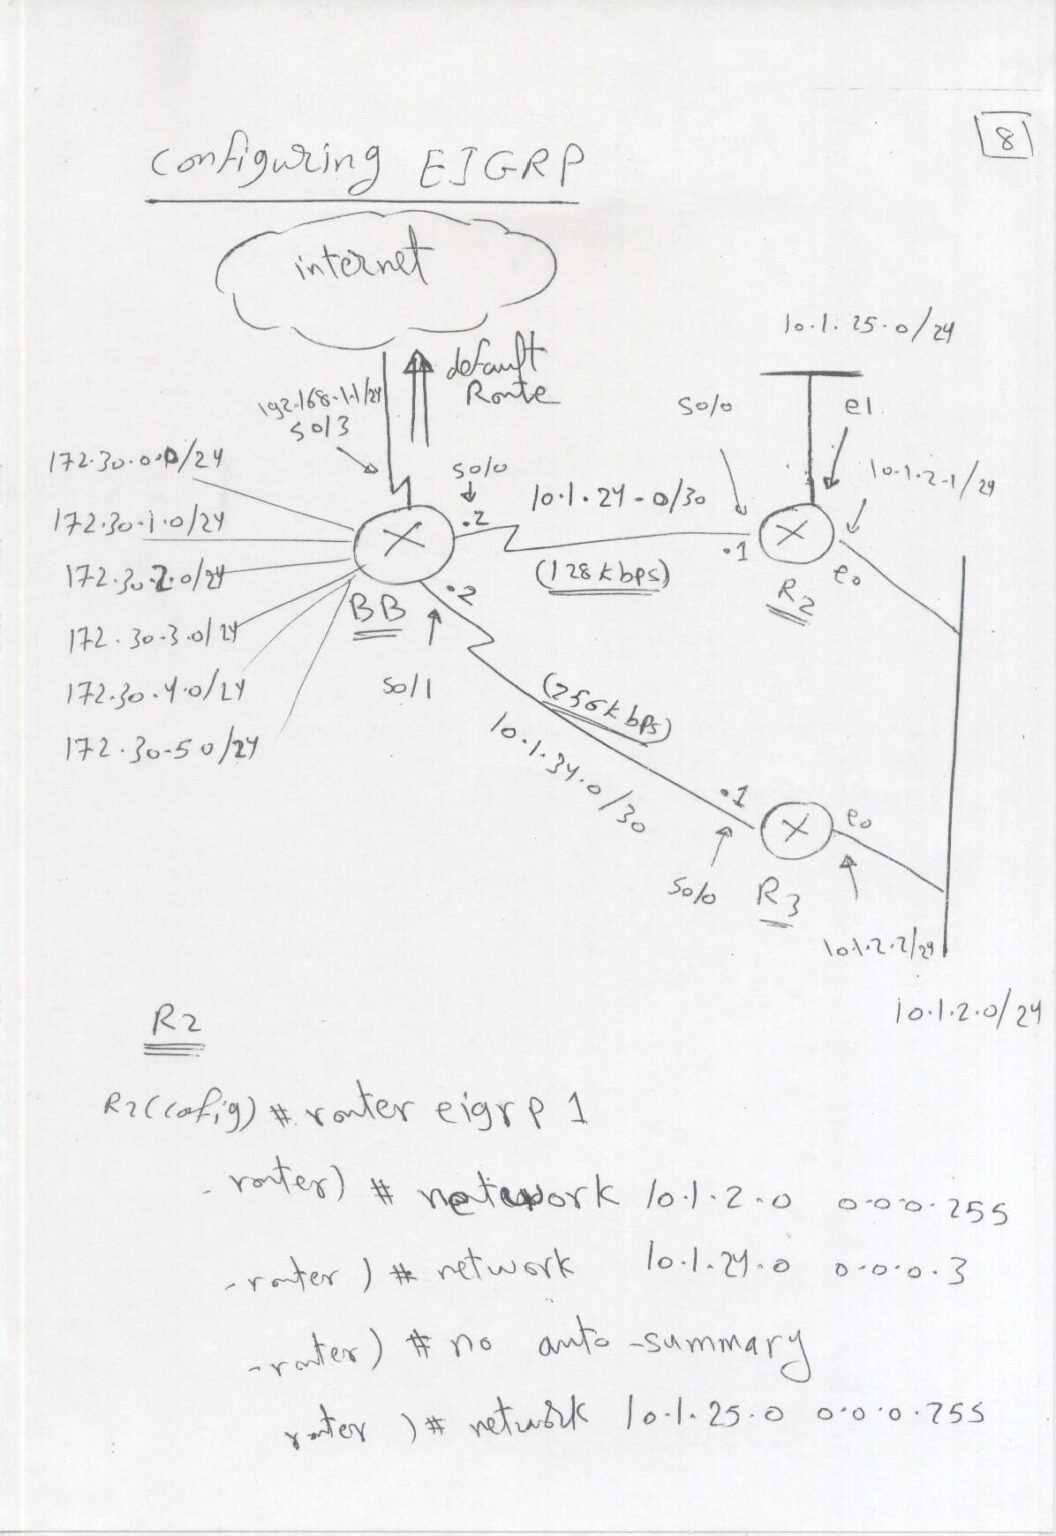 8
Configuring EIGRP
internet
default
Route
192.168.1.1/24
S0/3
10.1.25.0/24
S0/0
e1
10.1.2.1/24
172.30.0.0/24
172.30.1.0/24
172.30.2.0/24
172.30.3.0/24
172.30.4.0/24
172.30.5 0/24
S0/0
.2
10.1.24.0/30
.1
(128kbps)
e0
R2
BB
.2
S0/1
(256kbps)
10.1.34.0/30
.1
e0
S0/0
R3
10.1.2.2/24
10.1.2.0/24
R2
R2(cofig) # router eigrp 1
-router) # network 10.1.2.0 0.0.0.255
-router) # network 10.1.24.0 0.0.0.3
-router) # no auto-summary
router) # network 10.1.25.0 0.0.0.255